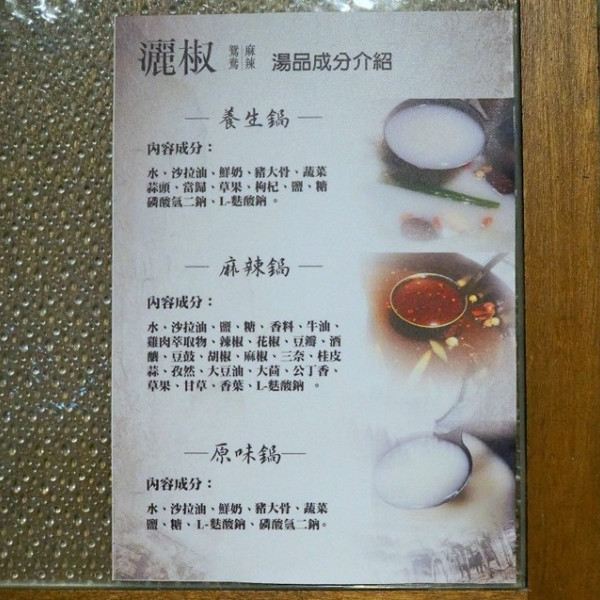 灑椒 鴛鴦 麻辣 湯品成分介紹
— 養生鍋 —
內容成分：
水、沙拉油、鮮奶、豬大骨、蔬菜
蒜頭、當歸、草果、枸杞、鹽、糖
磷酸氫二鈉、L-麩酸鈉。
— 麻辣鍋 —
內容成分：
水、沙拉油、鹽、糖、香料、牛油、
雞肉萃取物、辣椒、花椒、豆瓣、酒
釀、豆鼓、胡椒、麻椒、三奈、桂皮
蒜、孜然、大豆油、大茴、公丁香、
草果、甘草、香葉、L-麩酸鈉 。
—原味鍋—
內容成分：
水、沙拉油、鮮奶、豬大骨、蔬菜
鹽、糖、L-麩酸鈉、磷酸氫二鈉。